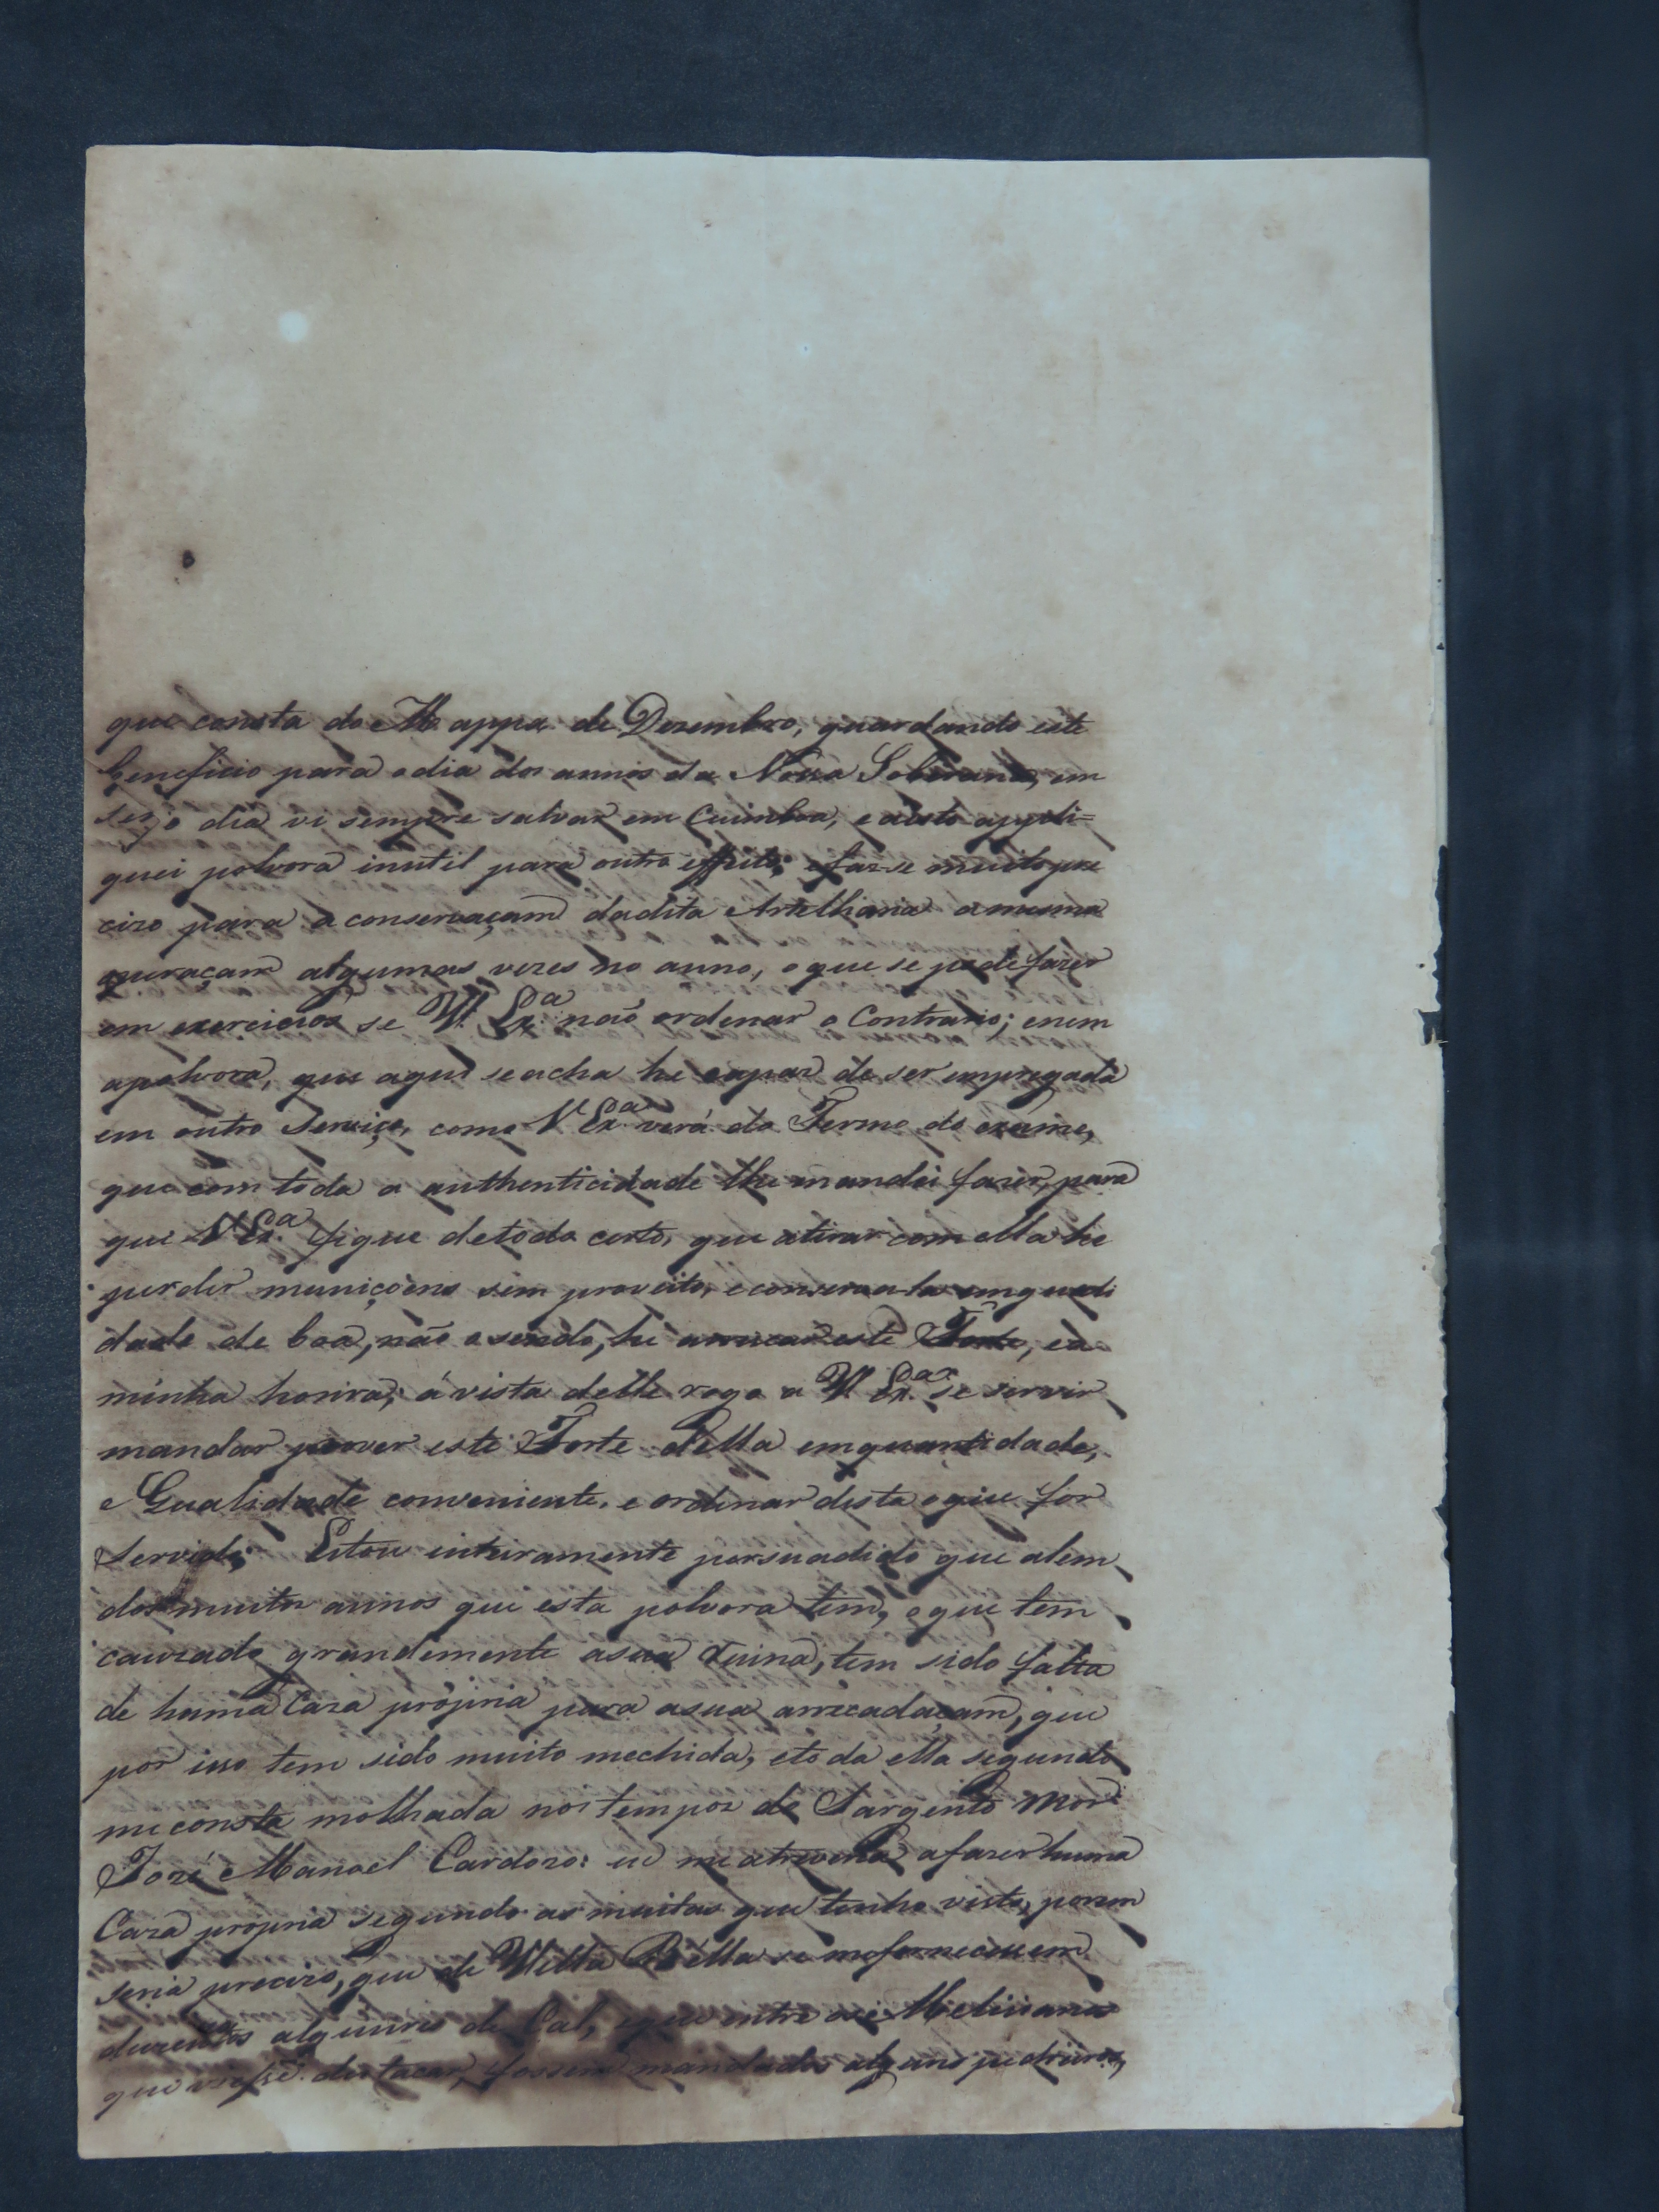 que consta do Mappa de Dezembro, guardando este
beneficio para o dia dos annos da Nossa Soberana, em
cujo dia vi sempre salvar em Cuimbra, e a isto appli=
quei polvora inutil para outro effeito; e faz-se muito pre
cizo para a conservaçam da dita Artelharia a mesma
apuraçam algumas vezes no anno, o que se pode fazer
em exercicios se V. Ex.ª não ordenar o Contrario; e nem
apolvora, que aqui se acha he capaz de ser empregada
em outro Serviço, como V Ex.ª verá do Termo do exáme,
que com toda a authenticidade lhe mandei fazer, para
que V Ex.ª fique de todo certo, que atirar com ella he
perder muniçoens sem proveito, e conserva-la em quali
dade de boa, não o sendo, he arriscar este Forte, e a
minha honra; á vista delle rogo a V. Ex.ª se servir
mandar prover este Forte della em quantidade,
e Qualidade conveniente, e ordenar desta o que for
Servido; Estou inteiramente persuadido que alem
dos muitos annos que esta polvora tem, o que tem
cauzado grandemente a sua ruina, tem sido falta
de huma Caza própria para a sua arrecadaçam, que
por isso tem sido muito mechida, e toda ella segundo
me consta molhada nos tempos do Sargento Mor
Jozé Manoel Cardozo: eu me atreveria a fazer huma
Caza propria segundo as muitas que tenho visto, porem
seria precizo, que de Villa Bella se me fornecessem
duzentos alqueires de Cal, e que entre os Milicianos
que viesse destacar, fossem mandados alguns pedreiros,